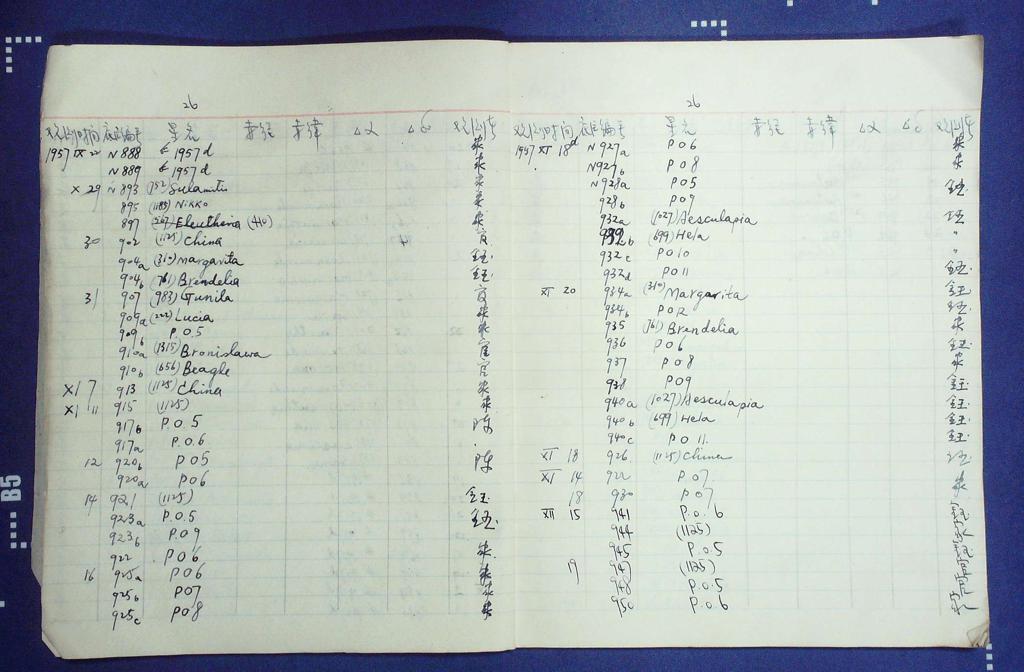 26
观测时间 底片编号 星名 赤经 赤纬 Δα Δδ 观测者
1957 IX 22 N 888 1957 d
N 889 1957 d
X 29 N 893 (752) Sulamitis
895 (1185) Nikko
897 (567) Eleutheria (410)
30 902 (1125) China
904a (310) margarita
904b (761) Brendelia
31 907 (983) Gunila
909a (222) Lucia
909b P.O.5
910a (1315) Bronislawa
910b (656) Beagle
XI 7 913 (1125) China
XI 11 915 (1125)
917b P.O.5 陈
917a P.O.6
12 920b PO5 陈
920a PO6
14 921 (1125)
923a P.O.5
923b P.O9
922 PO6
16 925a PO6
925b PO7
925c PO8
26
观测时间 底片编号 星名 赤经 赤纬 Δα Δδ 观测者
1957 XI 18d N 927a PO6
N927b PO8
N928a PO5
928b PO9
932a (1027) Aesculapia
932b (699) Hela "
932c PO10 "
932d PO11
XI 20 934a (310) Margarita
934b PO12
935 (761) Brendelia
936 PO6
937 PO8
938 PO9
940a (1027) Aesculapia
940b (699) Hela
940c PO11.
XI 18 926 (1125) China
XI 14 922 PO7
18 930 PO7
XII 15 941 P.O.6
944 (1125)
945 P.O.5
19 947 (1125)
P.O.5
950 P.O.6
B5